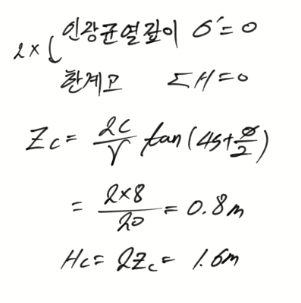 인장균열깊이 σ'=0
2× 한계고 ΣH=0
Zc = 2c/γ tan(45+ø/2)
= 2×8/20 = 0.8m
Hc = 2Zc = 1.6m